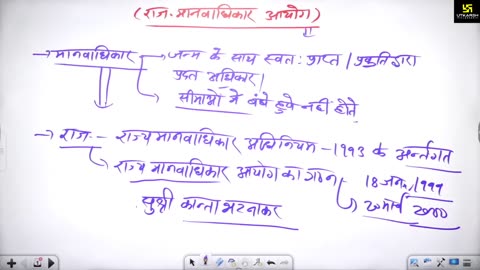 (राज. मानवाधिकार आयोग)
→ मानवाधिकार → जन्म के साथ स्वतः प्राप्त / प्रकृति द्वारा
प्रदत्त अधिकार।
→ सीमाओं में बंधे हुवे नहीं होते
→ राज. - राज्य मानवाधिकार अधिनियम - 1993 के अर्न्तगत
→ राज्य मानवाधिकार आयोग का गठन → 18 जन., 1999
सुश्री कान्ता भटनाकर → मार्च 2000